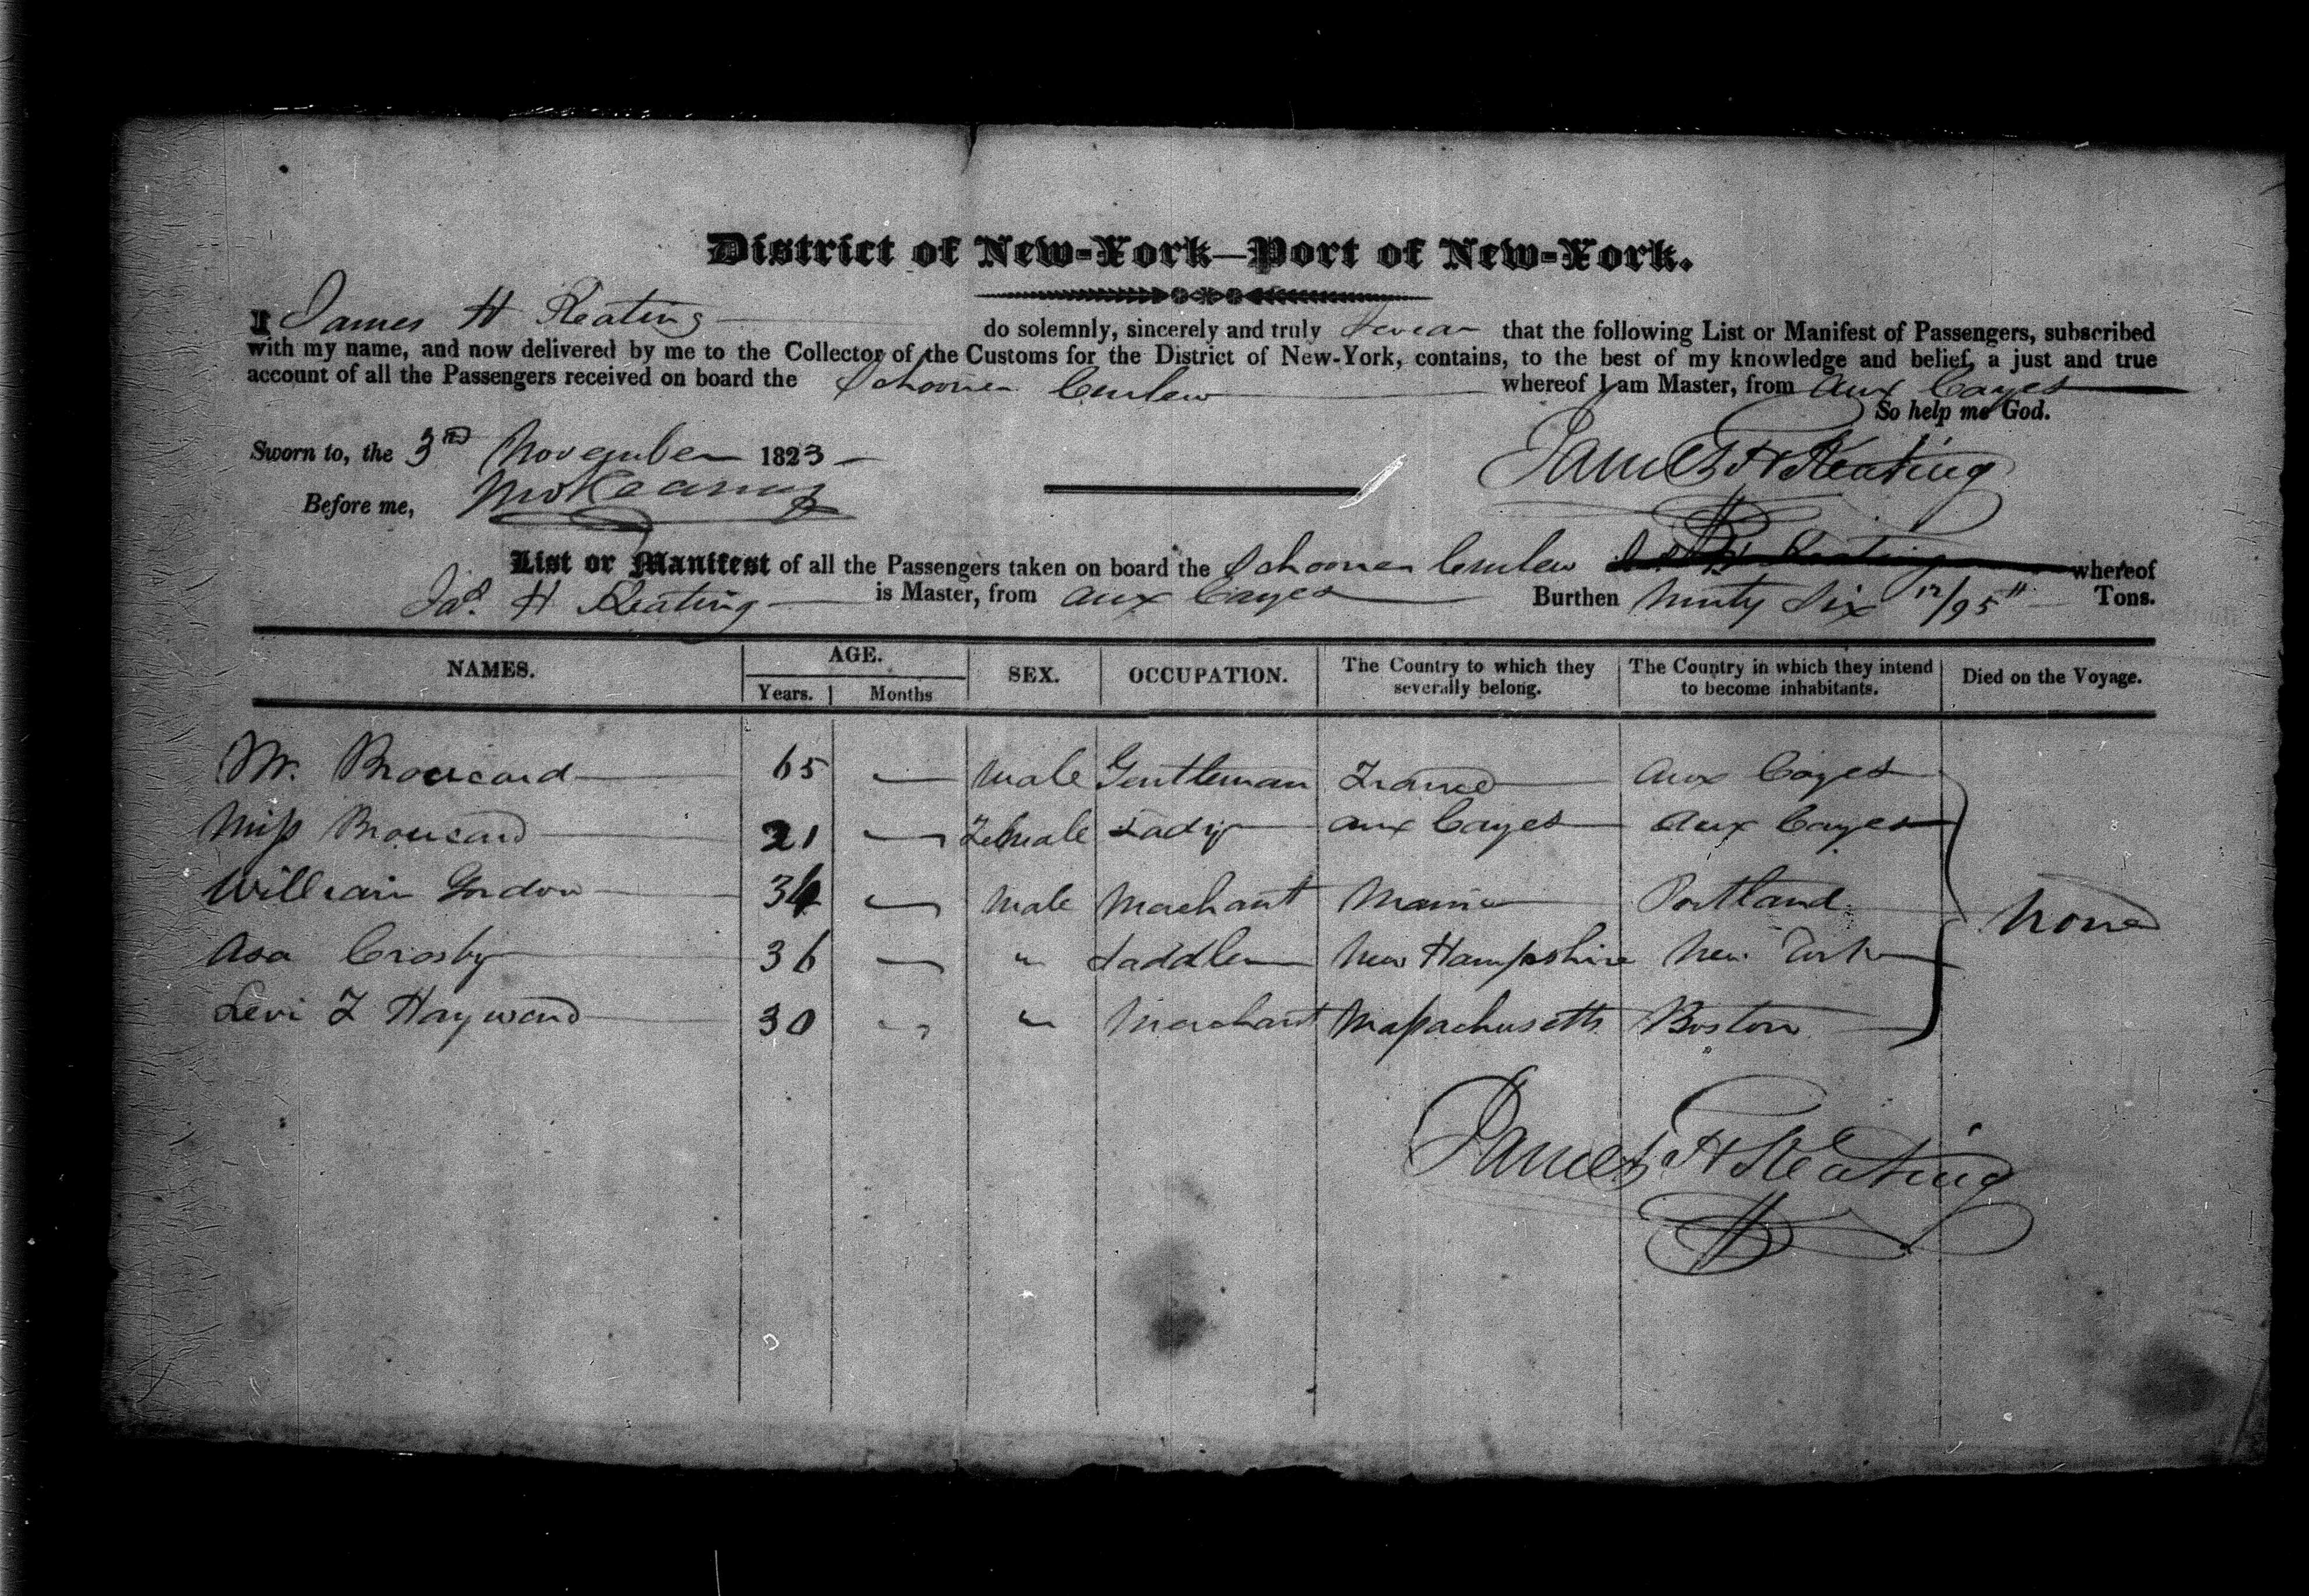 District of New-York—Port of New-York.
I James H Keating do solemnly, sincerely and truly Swear that the following List or Manifest of Passengers, subscribed
with my name, and now delivered by me to the Collector of the Customs for the District of New-York, contains, to the best of my knowledge and belief, a just and true
account of all the Passengers received on board the Schooner Curlew whereof I am Master, from Aux Cayes
So help me God.
Sworn to, the 3rd November 1823
James H Keating
Before me,
List or Manifest of all the Passengers taken on board the Schooner Curlew whereof
Jas. H Keating is Master, from Aux Cayes Burthen Ninty Six /95th Tons.
NAMES. AGE. SEX. OCCUPATION. The Country to which they severally belong. The Country in which they intend to become inhabitants. Died on the Voyage.
Years. Months
Mr. 65 — Male Gentleman France Aux Cayes
Miss 21 — Female Lady Aux Cayes Aux Cayes
William Gordon — Male Merchant Maine Portland None
Asa Crosby 36 — " Saddler New Hampshire New York
Levi F Hayward 30 " " Merchant Massachusetts Boston
James H Keating